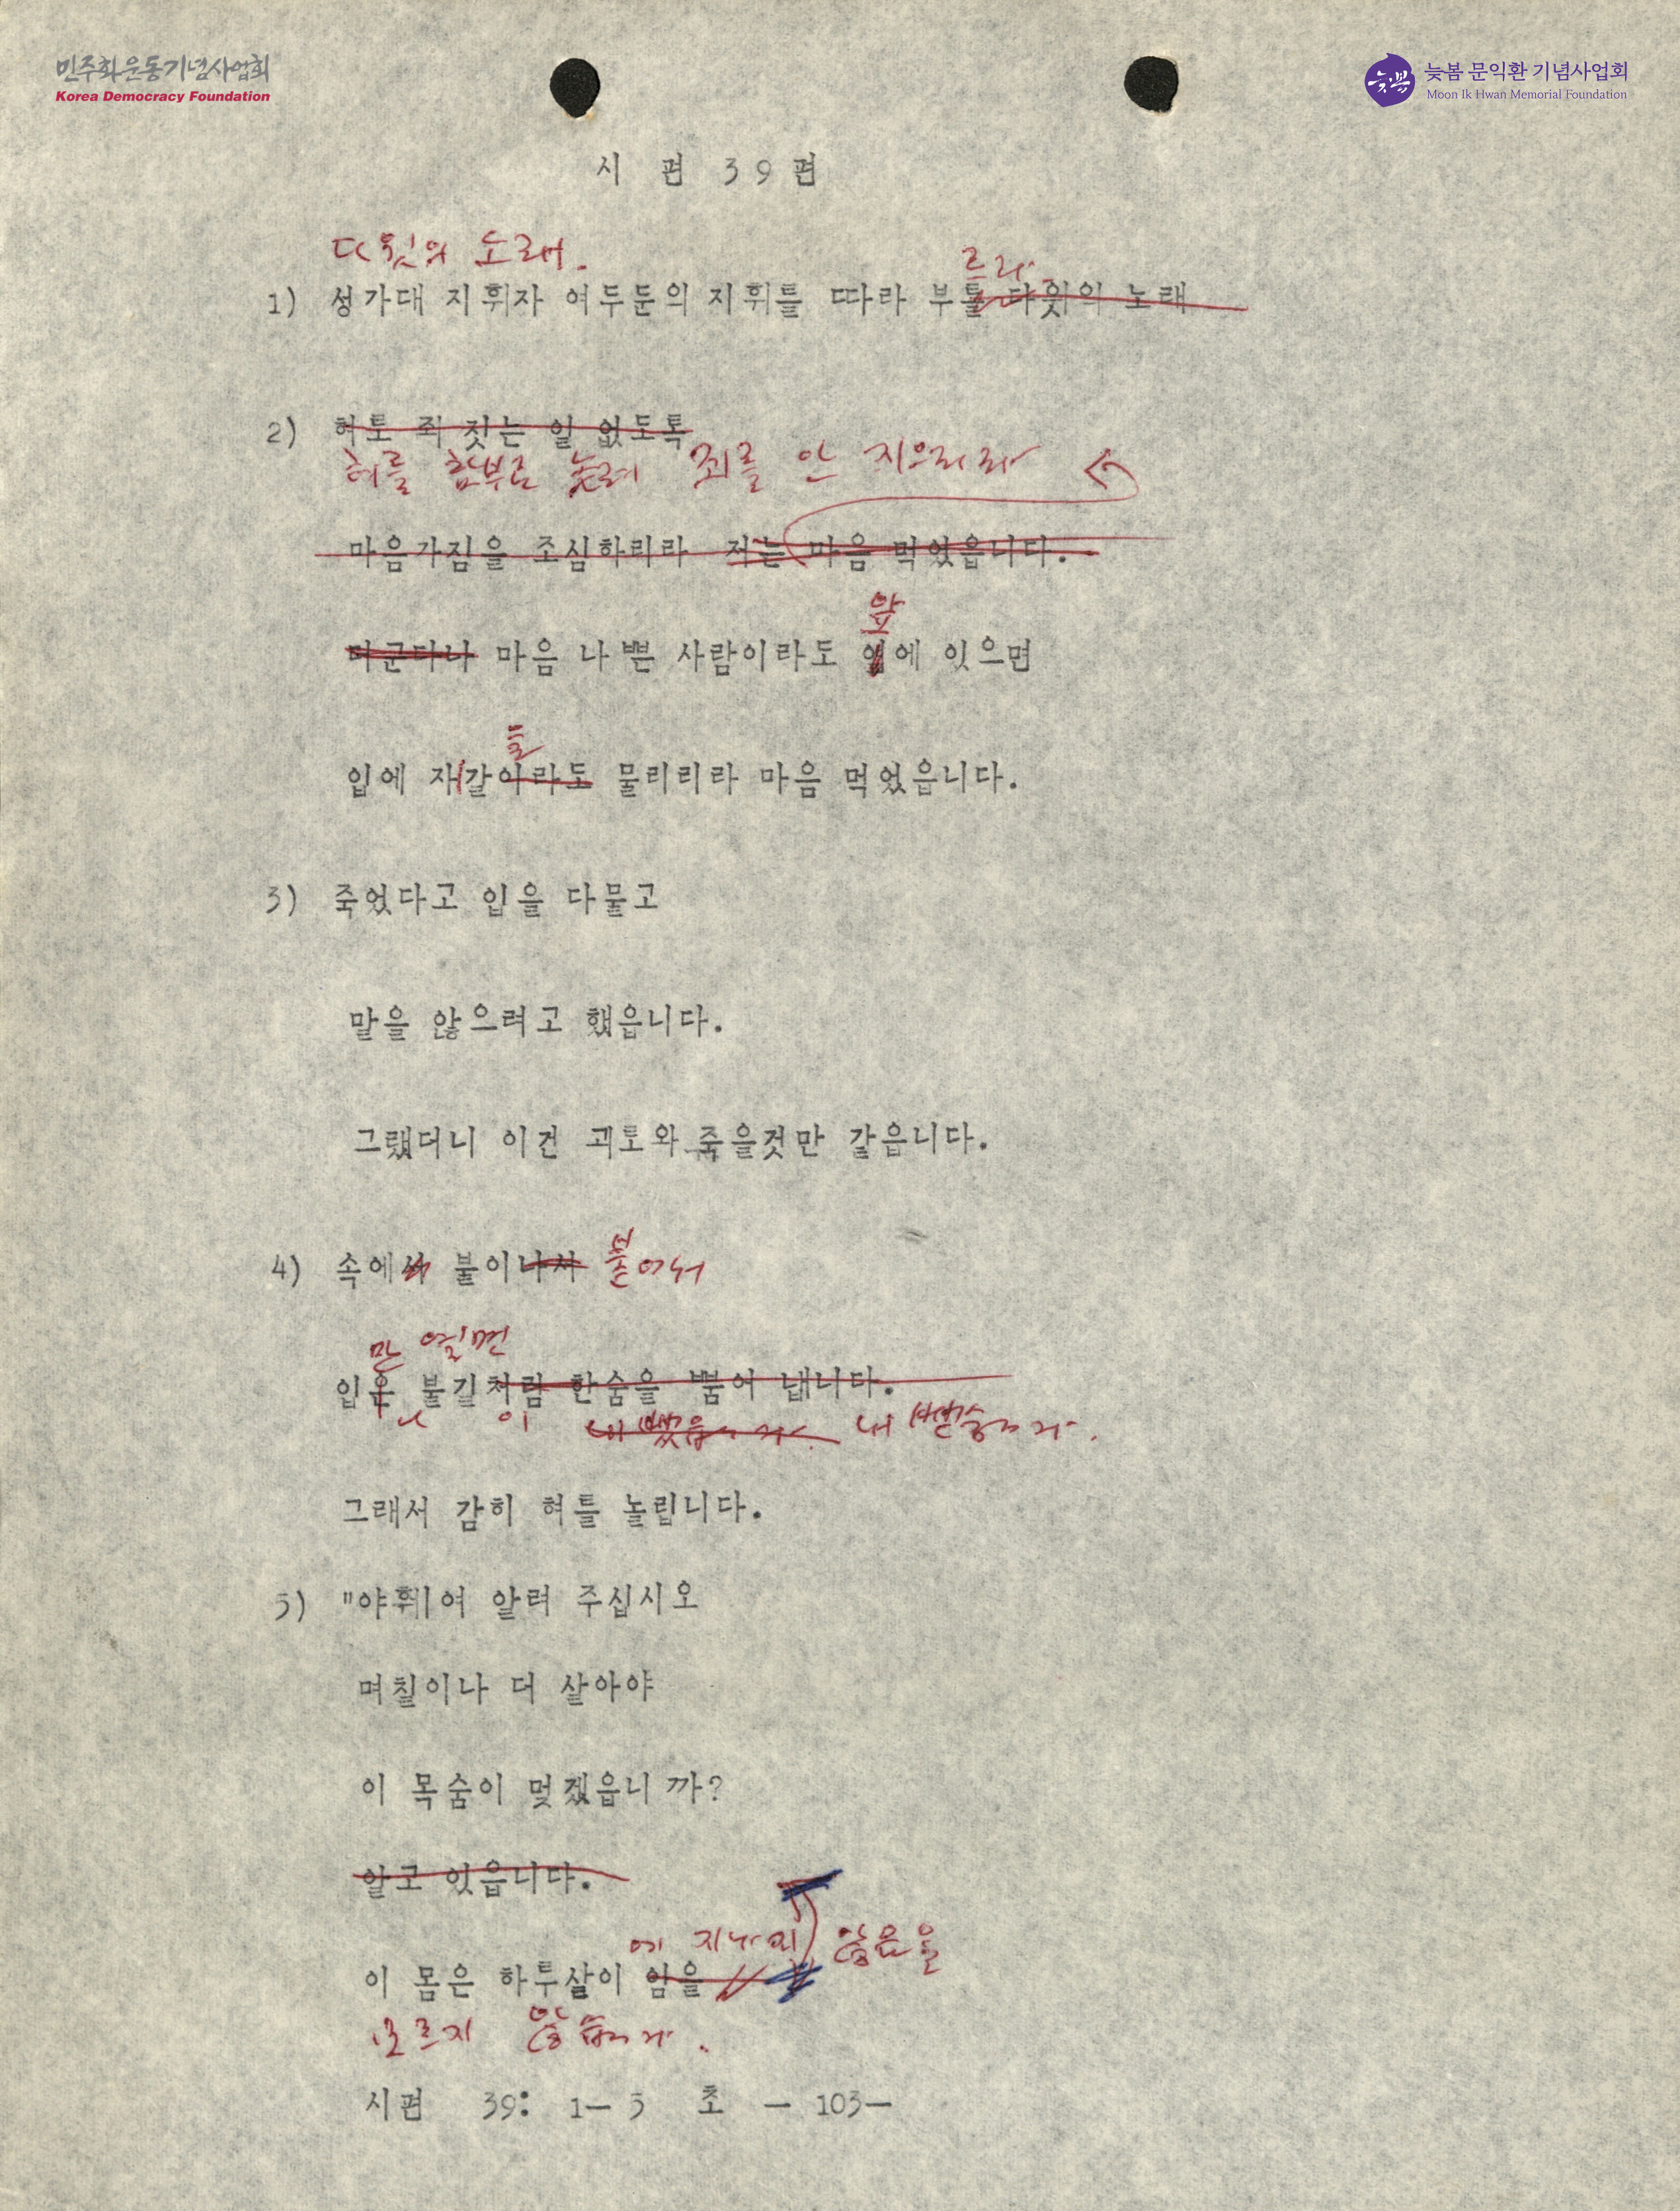 민주화운동기념사업회
Korea Democracy Foundation
늦봄 문익환 기념사업회
Moon Ik Hwan Memorial Foundation
늦봄
시 편 39편
다윗의 노래.
르라
1) 성가대 지휘자 여두둔의 지휘를 따라 부를 다윗의 노래
2) 혀로 죄 짓는 일 없도록
혀를 함부로 놀려 죄를 안 지으리라
마음가짐을 조심하리라 저는 마음 먹었읍니다.
앞
더군다나 마음 나쁜 사람이라도 옆에 있으면
를
입에 자갈이라도 물리리라 마음 먹었읍니다.
3) 죽었다고 입을 다물고
말을 않으려고 했읍니다.
그랬더니 이건 괴로와 죽을것만 같읍니다.
4) 속에서 불이나서 붙어서
만 열면
입은 불길처럼 한숨을 뿜어 냅니다.
이 내 뿜습니다.
그래서 감히 혀를 놀립니다.
5) "야훼여 알려 주십시오
며칠이나 더 살아야
이 목숨이 멎겠읍니까?
알고 있읍니다.
에 지나지 않음을
이 몸은 하루살이 임을
모르지 않습니다.
시편 39: 1— 5 초 — 103—